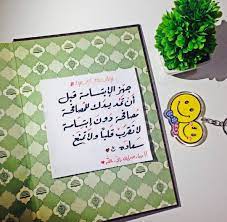 جهز الإبتسامة قبل
أن تمد يدك للمصافحة
فمصافحة دون إبتسامة
لا تقرب قلباً ولا تمنح
سعاده